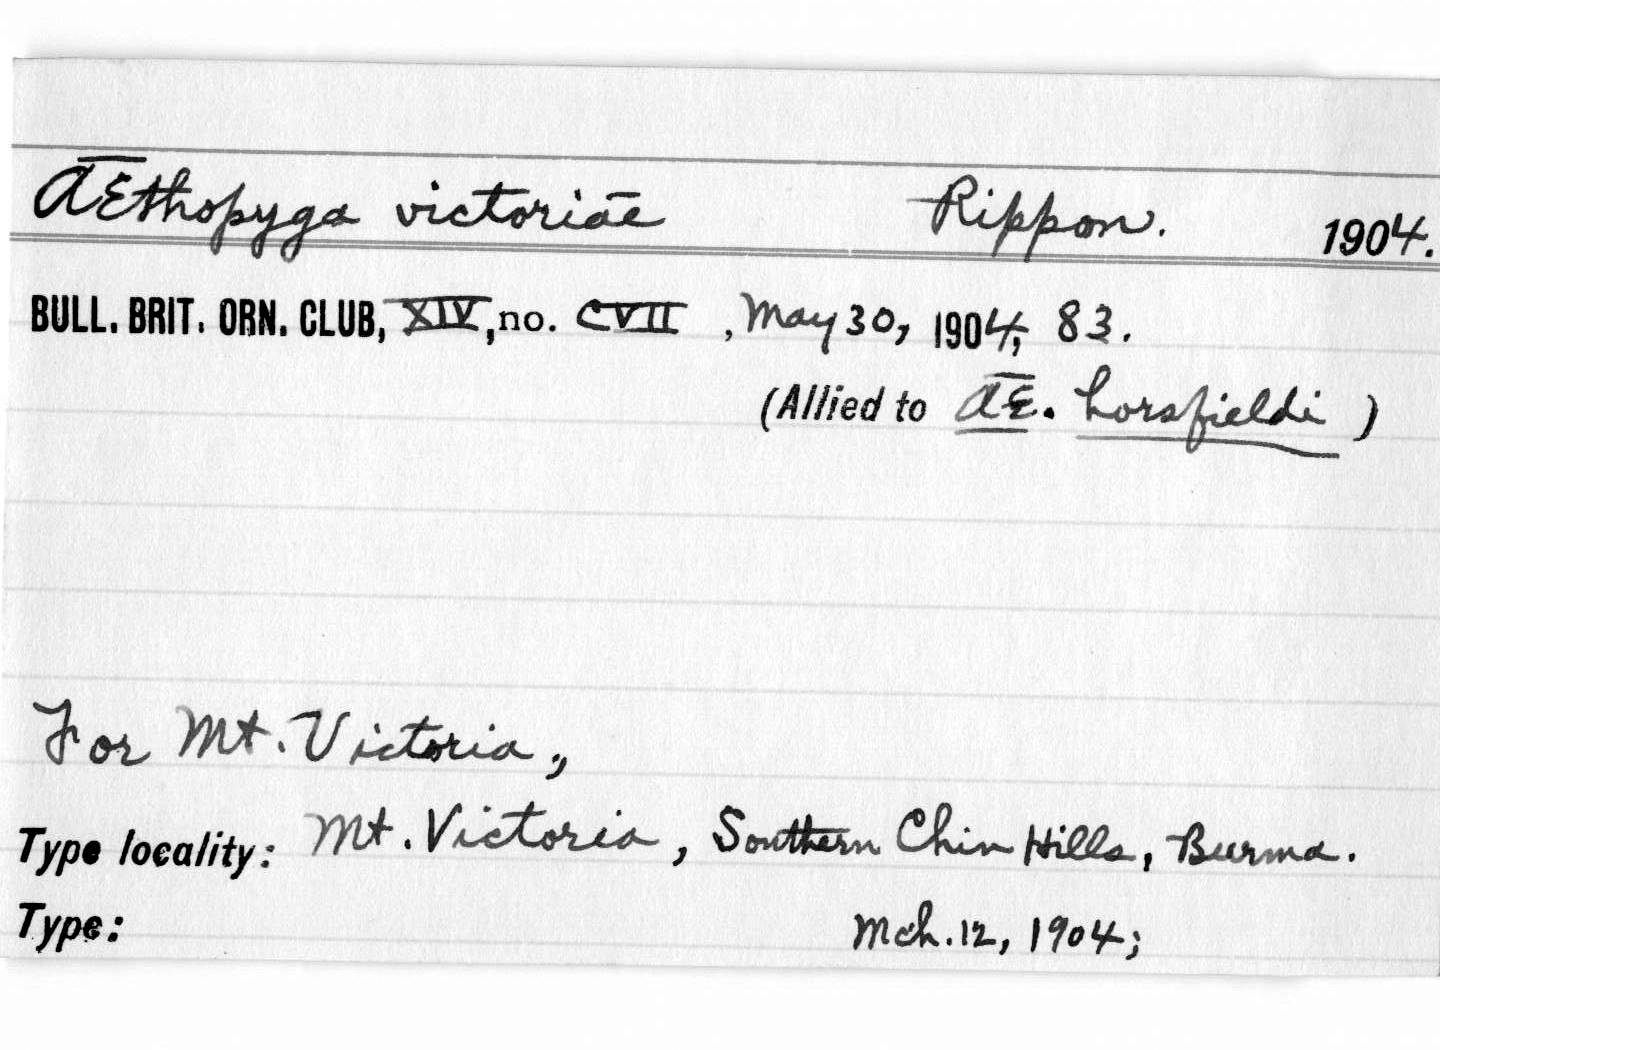 Æthopyga victoriae Rippon. 1904.
BULL. BRIT. ORN. CLUB, XIV, no. CVII , May 30, 1904; 83.
(Allied to Æ. horsfieldi )
For Mt. Victoria,
Type locality: Mt. Victoria, Southern Chin Hills, Burma.
Type: Mch. 12, 1904;